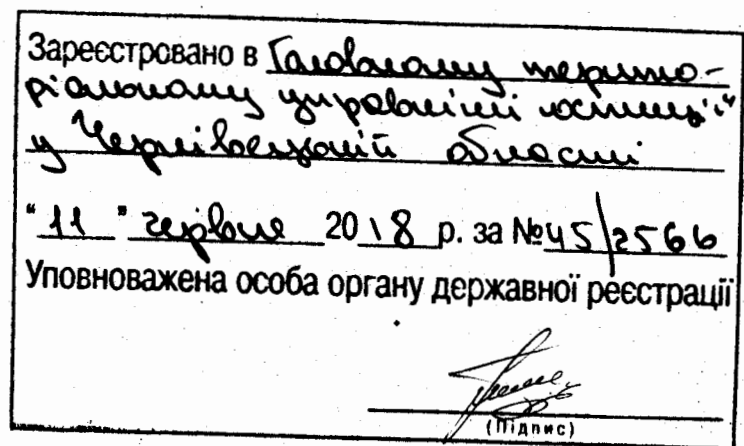 Зареєстровано в Головному терито-
ріальному управлінні юстиції
у Чернівецькій області
"11" червня 2018 р. за №45/2566
Уповноважена особа органу державної реєстрації
(Підпис)